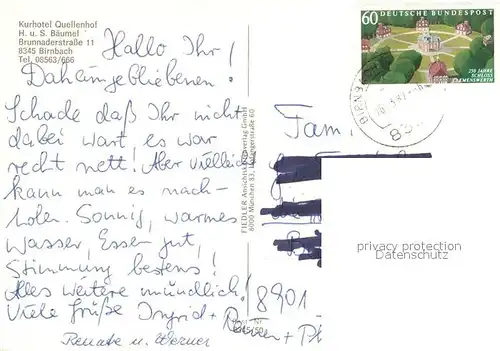 Kurhotel Quellenhof
H. u. S. Bäumel
Brunnaderstraße 11
8345 Birnbach
Tel. 08563/666
Hallo Ihr!
Daheimgebliebenen!
Schade daß Ihr nicht
dabei wart, es war
recht nett! Aber vielleicht
kann man es nach-
holen. Sonnig, warmes
Wasser, Essen gut,
Stimmung bestens!
Alles weitere mündlich!
Viele Grüße Ingrid +
Renate u. Werner
FIEDLER Ansichtskartenverlag GmbH
8000 München 83
60 DEUTSCHE BUNDESPOST
250 JAHRE
SCHLOSS
CLEMENSWERTH
Fam.
8901
privacy protection
Datenschutz